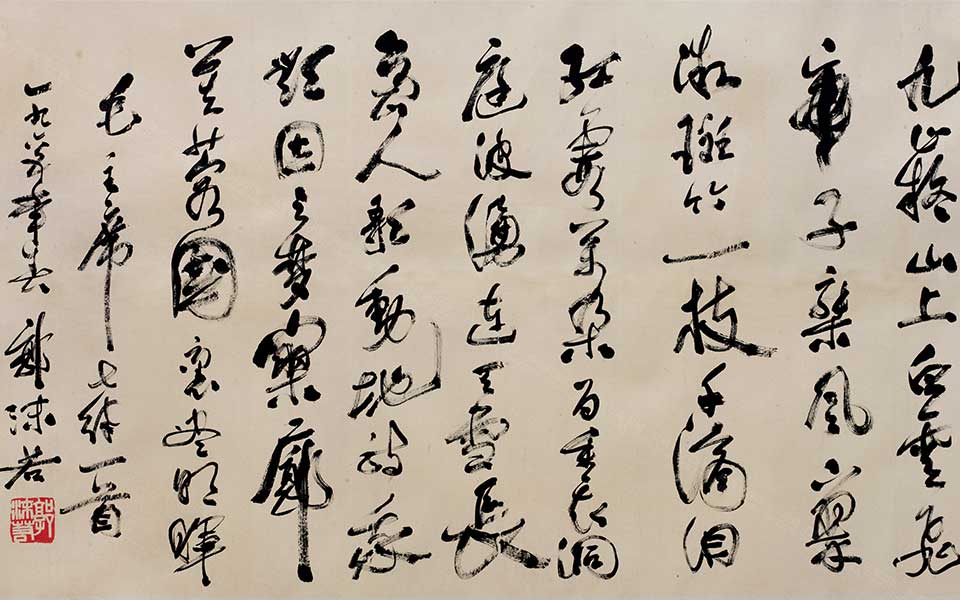 九嶷山上白雲飛
帝子乘风下翠
微斑竹一枝千滴泪
红霞萬朵百重衣洞
庭波涌連天雪長
島人歌動地诗我
欲因之夢寥廓
芙蓉國裏盡朝暉
毛主席七律一首
一九年春 郭沫若
郭沫若